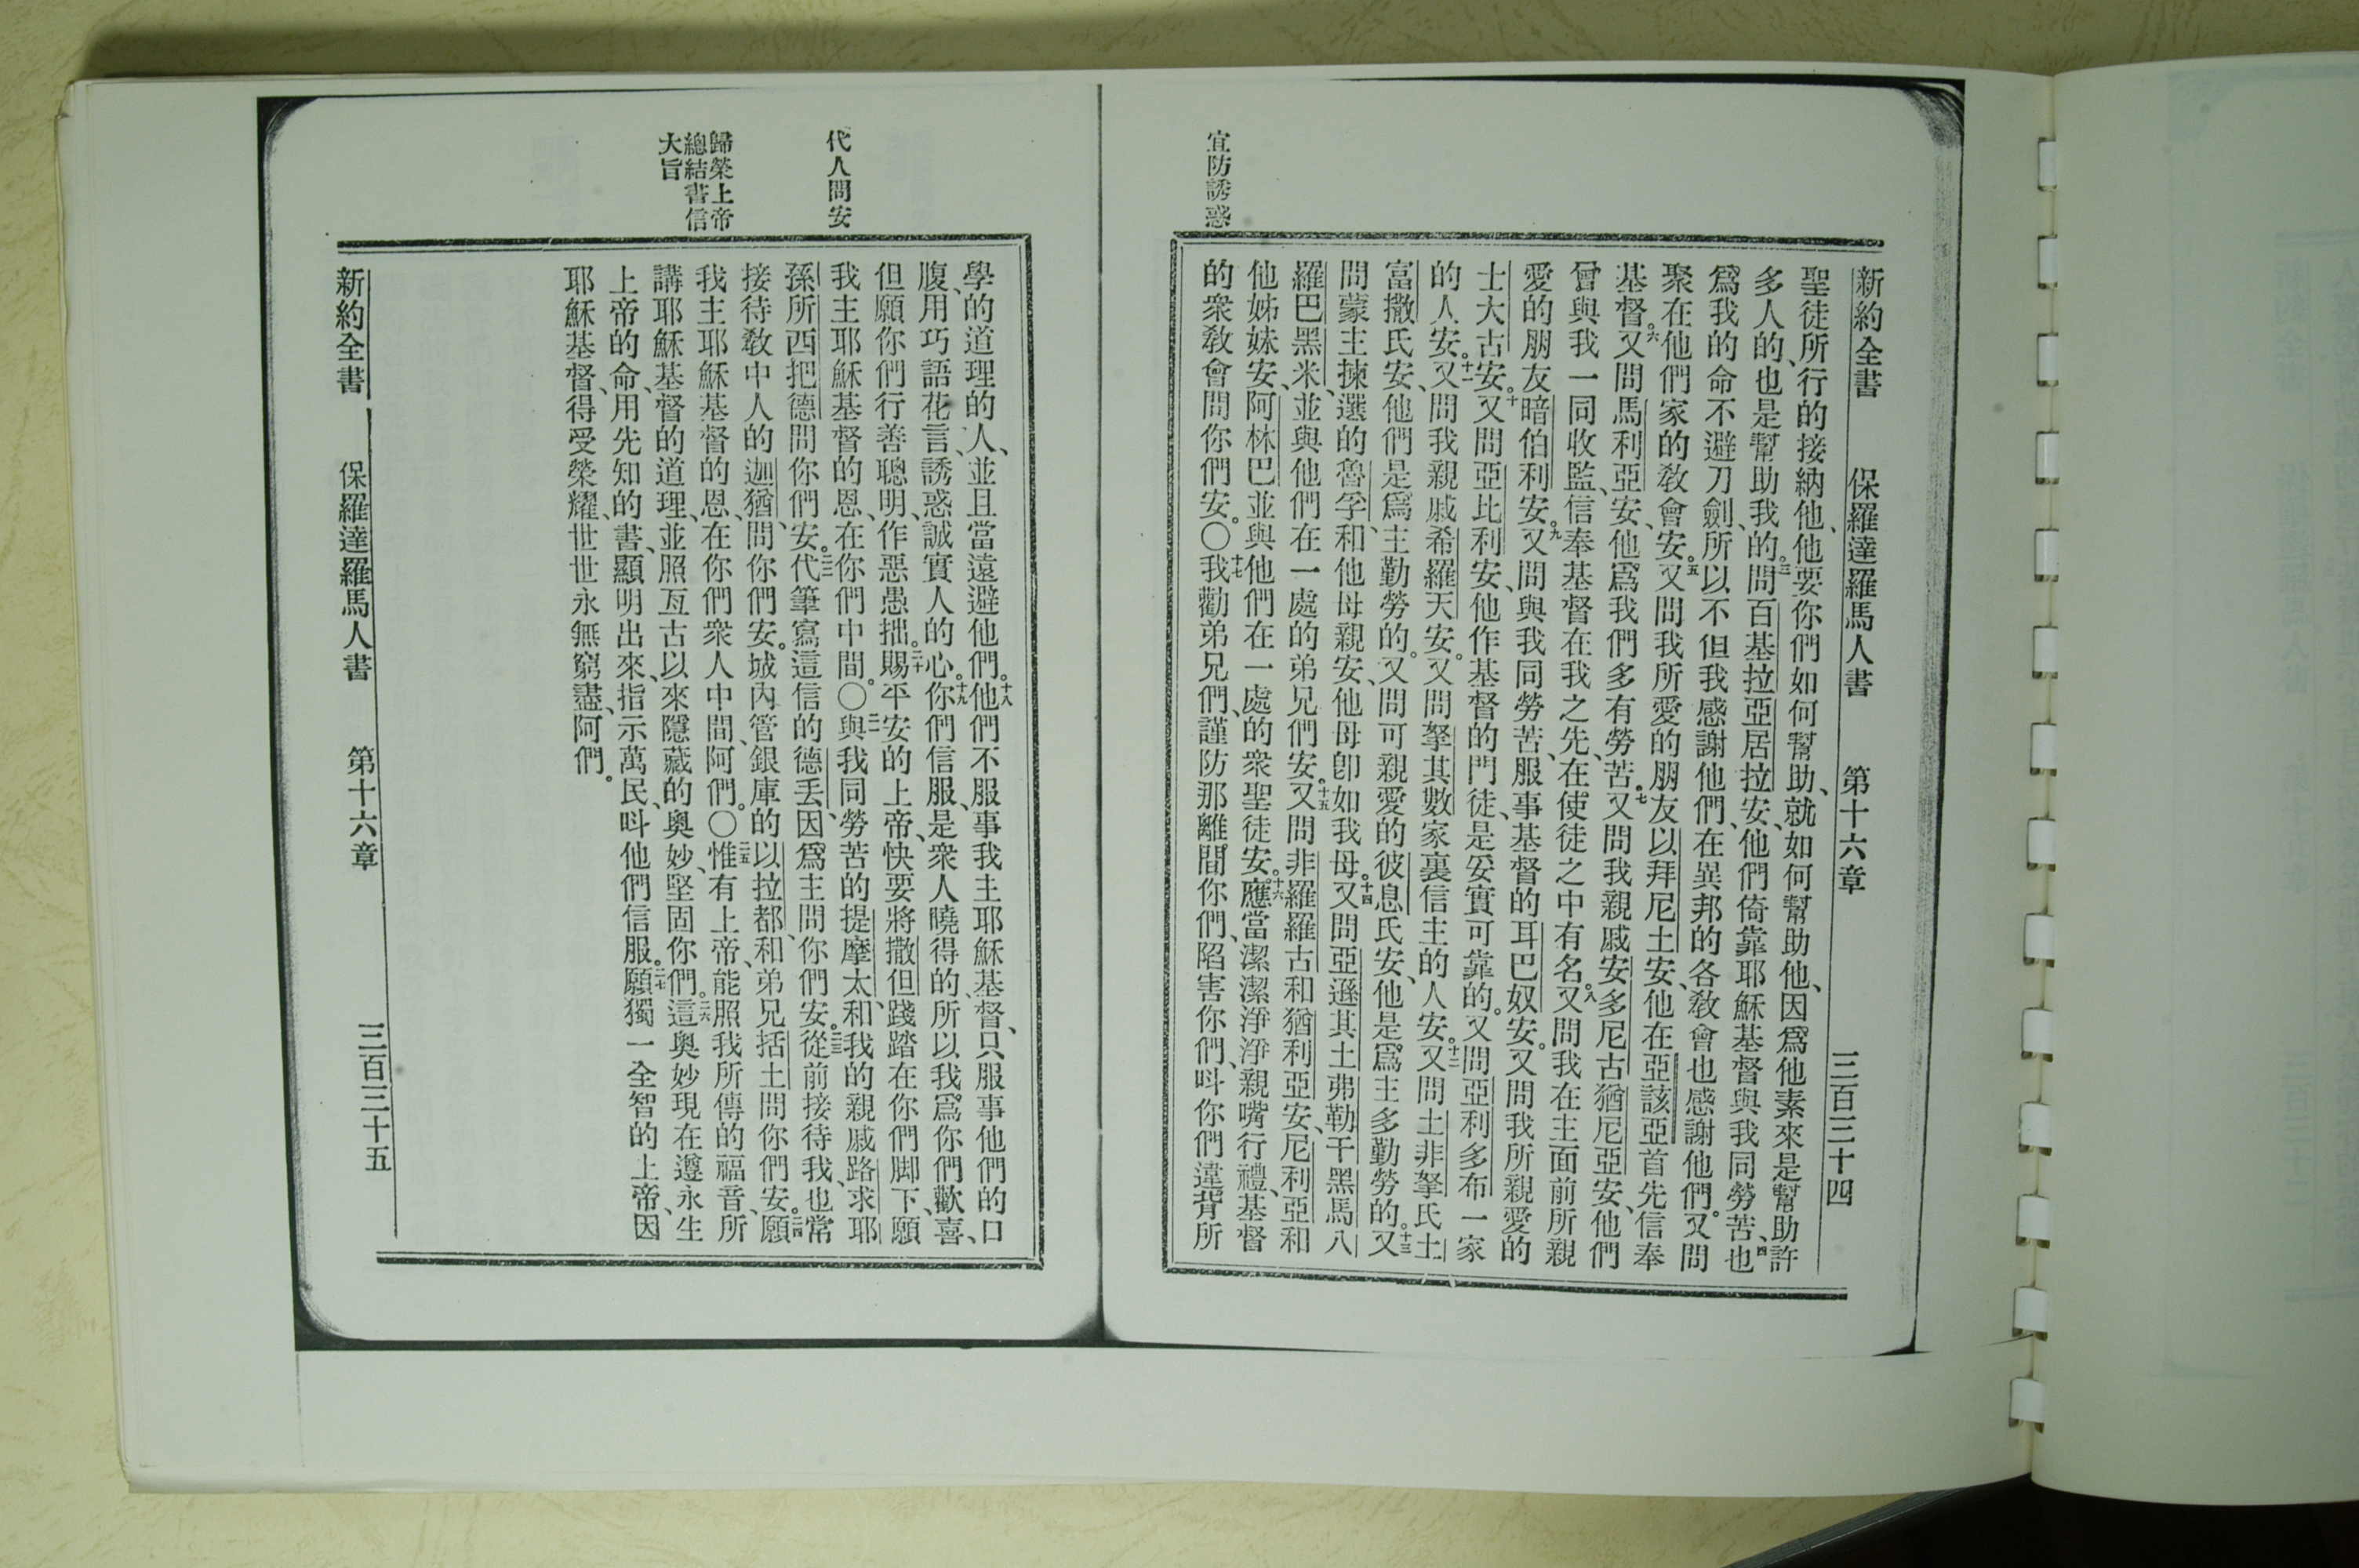 新約全書　保羅達羅馬人書　第十六章　三百三十四
聖徒所行的接納他、他要你們如何幫助、就如何幫助他、因爲他素來是幫助許
多人的、也是幫助我的。三問百基拉亞居拉安、他們倚靠耶穌基督與我同勞苦、四也
爲我的命不避刀劍、所以不但我感謝他們、在異邦的各教會也感謝他們。又問
聚在他們家的教會安。五又問我所愛的朋友以拜尼土安、他在亞該亞首先信奉
基督。六又問馬利亞安、他爲我們多有勞苦。七又問我親戚安多尼古猶尼亞安、他們
曾與我一同收監、信奉基督在我之先、在使徒之中有名。八又問我在主面前所親
愛的朋友暗伯利安。九又問與我同勞苦、服事基督的耳巴奴安。又問我所親愛的
士大古安。十又問亞比利安、他作基督的門徒、是妥實可靠的。又問亞利多布一家
的人安。十一又問我親戚希羅天安。又問拏其數家裏信主的人安。十二又問土非拏氏土
富撒氏安、他們是爲主勤勞的。又問可親愛的彼息氏安、他是爲主多勤勞的。十三又
問蒙主揀選的魯孚、和他母親安、他母卽如我母。十四又問亞遜其土弗勒干黑馬八
羅巴黑米、並與他們在一處的弟兄們安。十五又問非羅羅古和猶利亞安、尼利亞和
他姊妹安、阿林巴並與他們在一處的衆聖徒安。十六應當潔潔淨淨、親嘴行禮、基督
的衆教會問你們安。〇十七我勸弟兄們、謹防那離間你們、陷害你們、呌你們違背所
宜防誘惑
學的道理的人、並且當遠避他們。十八他們不服事我主耶穌基督、只服事他們的口
腹、用巧語花言、誘惑誠實人的心。十九你們信服、是衆人曉得的、所以我爲你們歡喜、
但願你們行善聰明、作惡愚拙。二十賜平安的上帝、快要將撒但踐踏在你們脚下、願
我主耶穌基督的恩、在你們中間。〇二一與我同勞苦的提摩太、和我的親戚路求耶
孫所西把德問你們安。二二代筆寫這信的德丢、因爲主問你們安。二三從前接待我、也常
接待敎中人的迦猶、問你們安。城內管銀庫的以拉都、和弟兄括土問你們安。二四願
我主耶穌基督的恩、在你們衆人中間、阿們。〇二五惟有上帝、能照我所傳的福音、所
講耶穌基督的道理、並照亙古以來隱藏的奧妙、堅固你們。二六這奧妙現在遵永生
上帝的命、用先知的書、顯明出來、指示萬民、呌他們信服。二七願獨一全智的上帝、因
耶穌基督、得受榮耀、世世永無窮盡、阿們。
代人問安
歸榮上帝
總結書信
大旨
新約全書　保羅達羅馬人書　第十六章　三百三十五